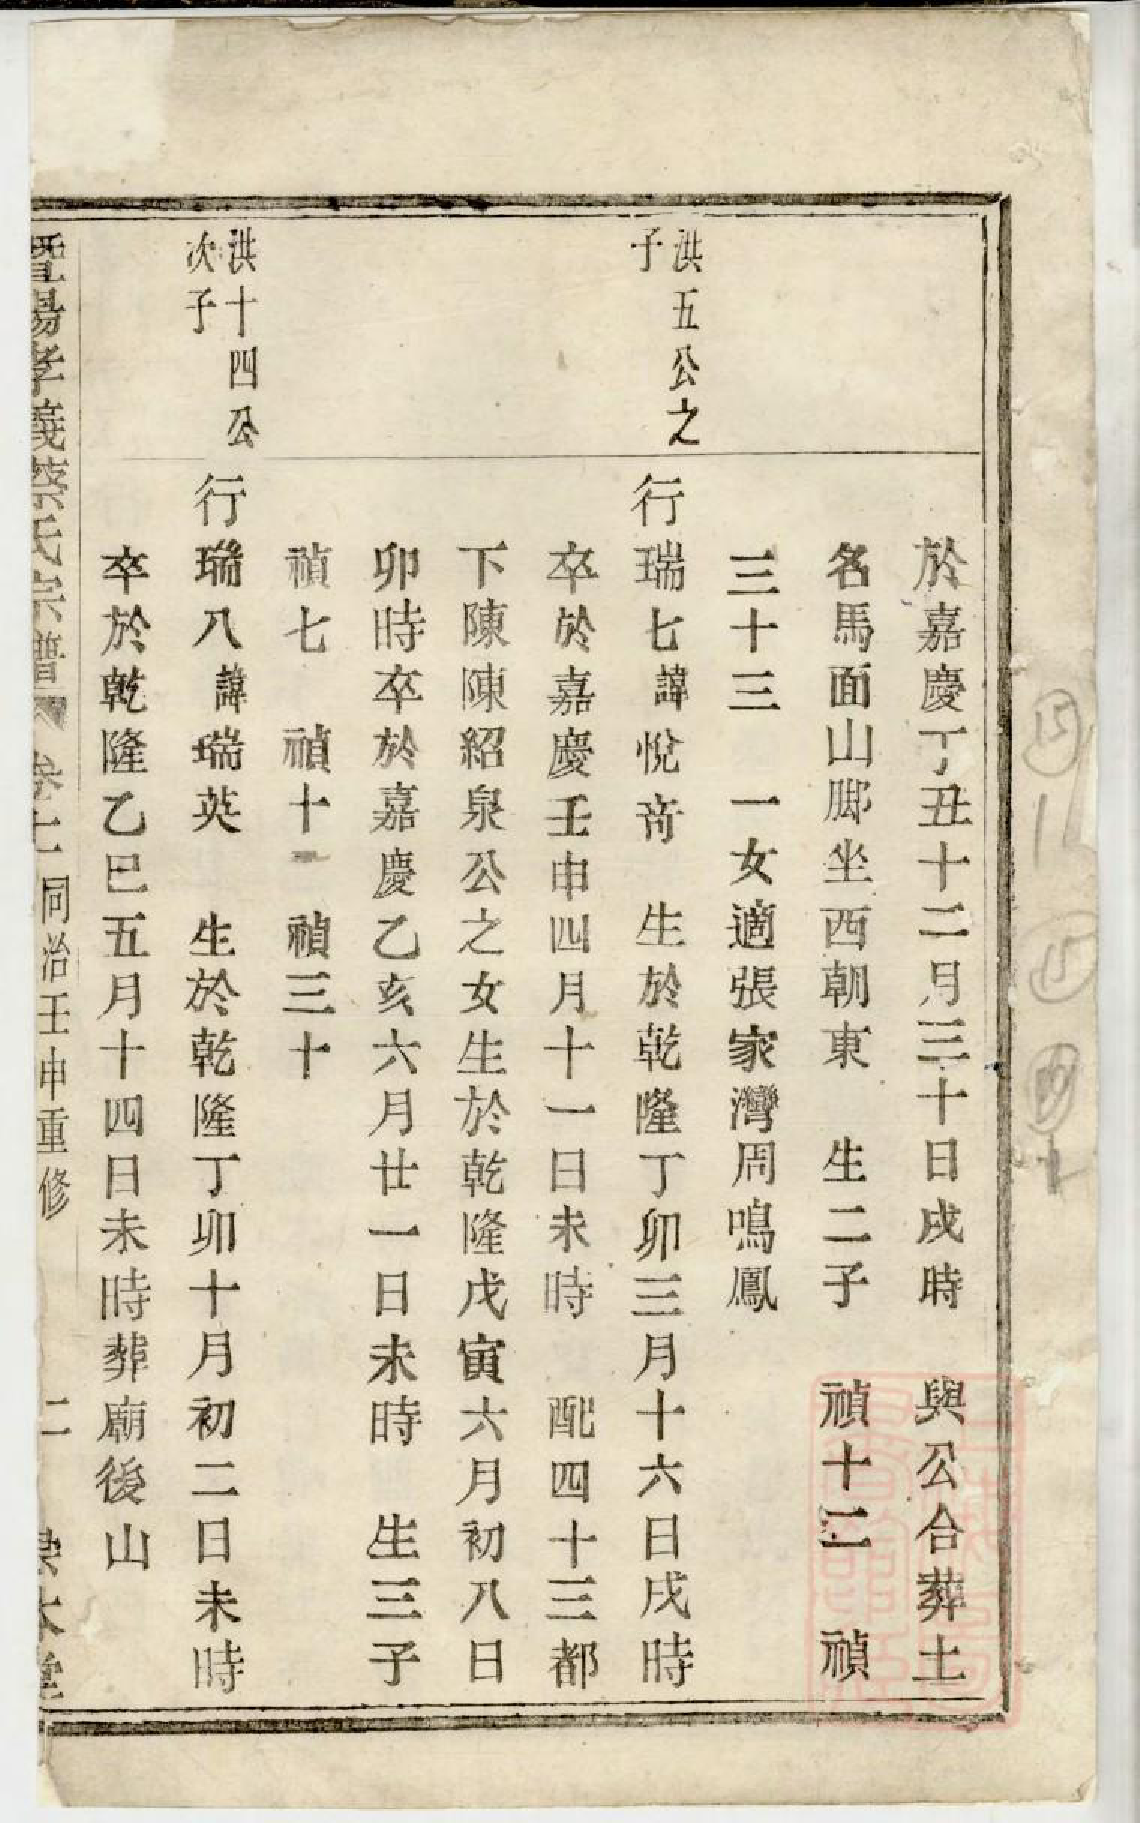 於嘉慶丁丑十二月三十日戌時　與公合葬土
名馬面山脚坐西朝東　生二子　禎十二　禎
三十三　一女適張家灣周鳴鳳
洪五公之
子
行瑞七諱悅奇　生於乾隆丁卯三月十六日戌時
卒於嘉慶壬申四月十一日未時　配四十三都
下陳陳紹泉公之女生於乾隆戊寅六月初八日
卯時卒於嘉慶乙亥六月廿一日未時　生三子
禎七　禎十二　禎三十
洪十四公
次子
行瑞八諱瑞英　生於乾隆丁卯十月初二日未時
卒於乾隆乙巳五月十四日未時葬廟後山
暨陽孝義蔡氏宗譜　卷十　同治壬申重修　二　崇本堂
15
15